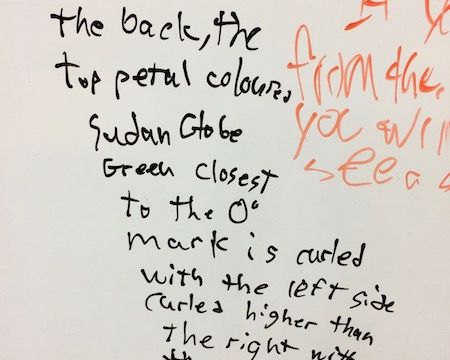 the back, the
top petal coloured
Sudan Globe
Green closest
to the 0°
mark is curled
with the left side
curled higher than
the right with
from the
you will
see a